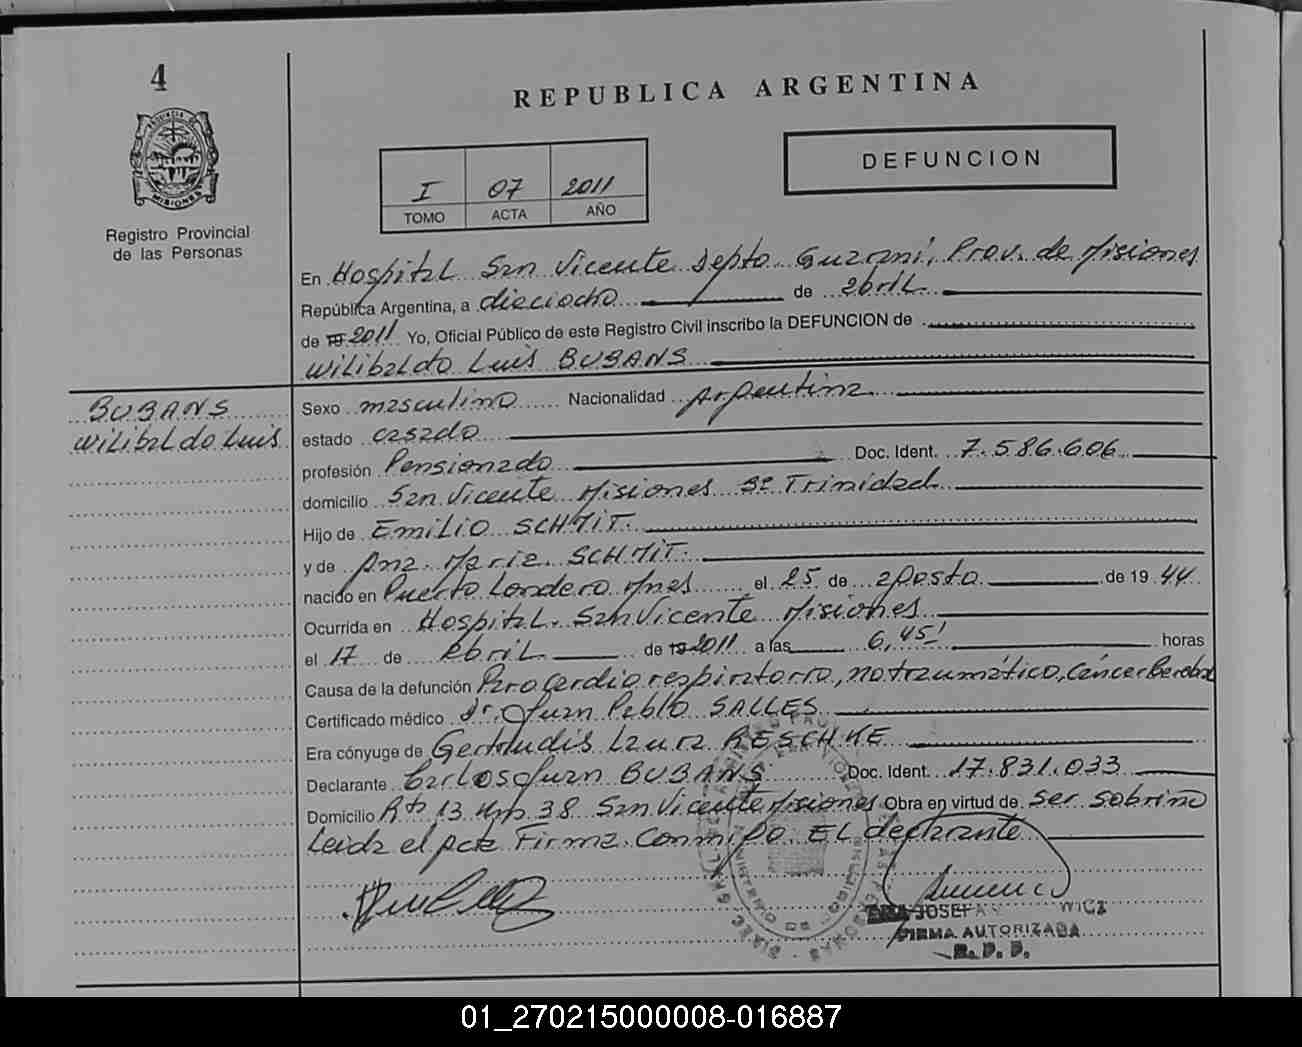 4
REPUBLICA ARGENTINA
PROVINCIA DE
MISIONES
DEFUNCION
I 07 2011
TOMO ACTA AÑO
Registro Provincial
de las Personas
En Hospital San Vicente Depto Guaraní, Prov. de Misiones
República Argentina, a dieciocho de abril
de 19 2011 Yo, Oficial Público de este Registro Civil inscribo la DEFUNCION de
Wilibaldo Luis BUBANS
BUBANS
Wilibaldo Luis
Sexo masculino Nacionalidad Argentina
estado casado
profesión Pensionado Doc. Ident. 7.586.606
domicilio San Vicente Misiones Bº Trinidad
Hijo de Emilio SCHMIT.
y de Ana Maria SCHMIT.
nacido en Puerto Londero Mnes el 25 de agosto de 19 44
Ocurrida en Hospital San Vicente Misiones
el 17 de Abril de 19 2011 a las 6,45' horas
Causa de la defunción Parocardiorespiratorio, no traumático, cáncer
Certificado médico Dr. Juan Pablo SALLES
Era cónyuge de Gertrudis Laura RESCHKE
Declarante Carlos Juan BUBANS Doc. Ident. 17.831.033
Domicilio Rta 13 Km 38 San Vicente Misiones Obra en virtud de ser sobrino
Leida el Acta Firma Conmigo El declarante
JOSEFA WICZ
FIRMA AUTORIZADA
R. P. P.
01_270215000008-016887